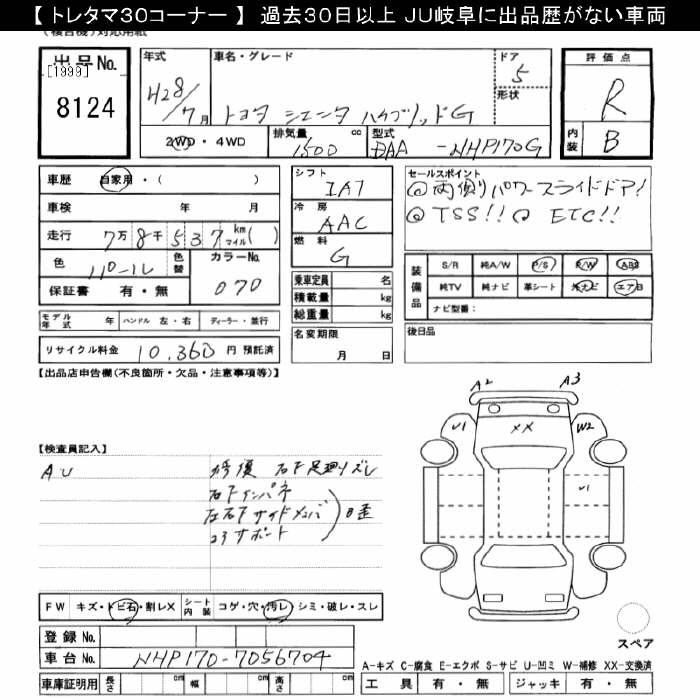 【トレタマ30コーナー】 過去30日以上 JU岐阜に出品歴がない車両
(複合機) 対応用紙
出品No.
[1999]
8124
年式
H28/7月
車名・グレード
トヨタ シエンタ ハイブリッドG
ドア
5
形状
2WD・4WD
排気量 cc
1500
型式
DAA -NHP170G
評価点
R
内装
B
車歴 自家用・( )
車検 年 月
走行 7万8千537 km マイル( )
色 パール 色替
カラーNo.
070
保証書 有・無
シフト
IAT
冷房
AAC
燃料
G
乗車定員 名
積載量 kg
総重量 kg
セールスポイント
◎両側パワースライドドア!
◎TSS!!◎ ETC!!
装備品
S/R 純A/W P/S P/W ABS
純TV 純ナビ 革シート 社ナビ エアB
ナビ型番:
モデル年式 年 ハンドル 左・右 ディーラー・並行
リサイクル料金 10,360 円 預託済
名変期限
月 日
後日品
【出品店申告欄(不良箇所・欠品・注意事項等)】
【検査員記入】
AU
修復 右F足廻りズレ
右Fインパネ
左右Fサイドメンバ
コアサポート
歪
A2
A3
U1
XX
W2
U1
FW キズ・トビ石・割レX
シート内装 コゲ・穴・汚レ・シミ・破レ・スレ
スペア
登録No.
車台No. NHP170-7056704
A-キズ C-腐食 E-エクボ S-サビ U-凹ミ W-補修 XX-交換済
車庫証明用 長さ cm 幅 cm 高さ cm
工具 有・無 ジャッキ 有・無